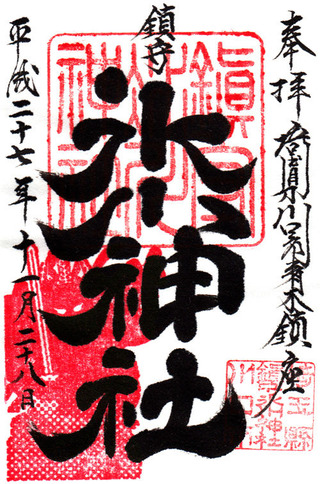 奉拝 埼玉県川口市青木鎮座
鎮守
氷川神社
平成二十七年十一月二十八日
鎮守氷川神社
埼玉縣
川口
鎮守氷川神社